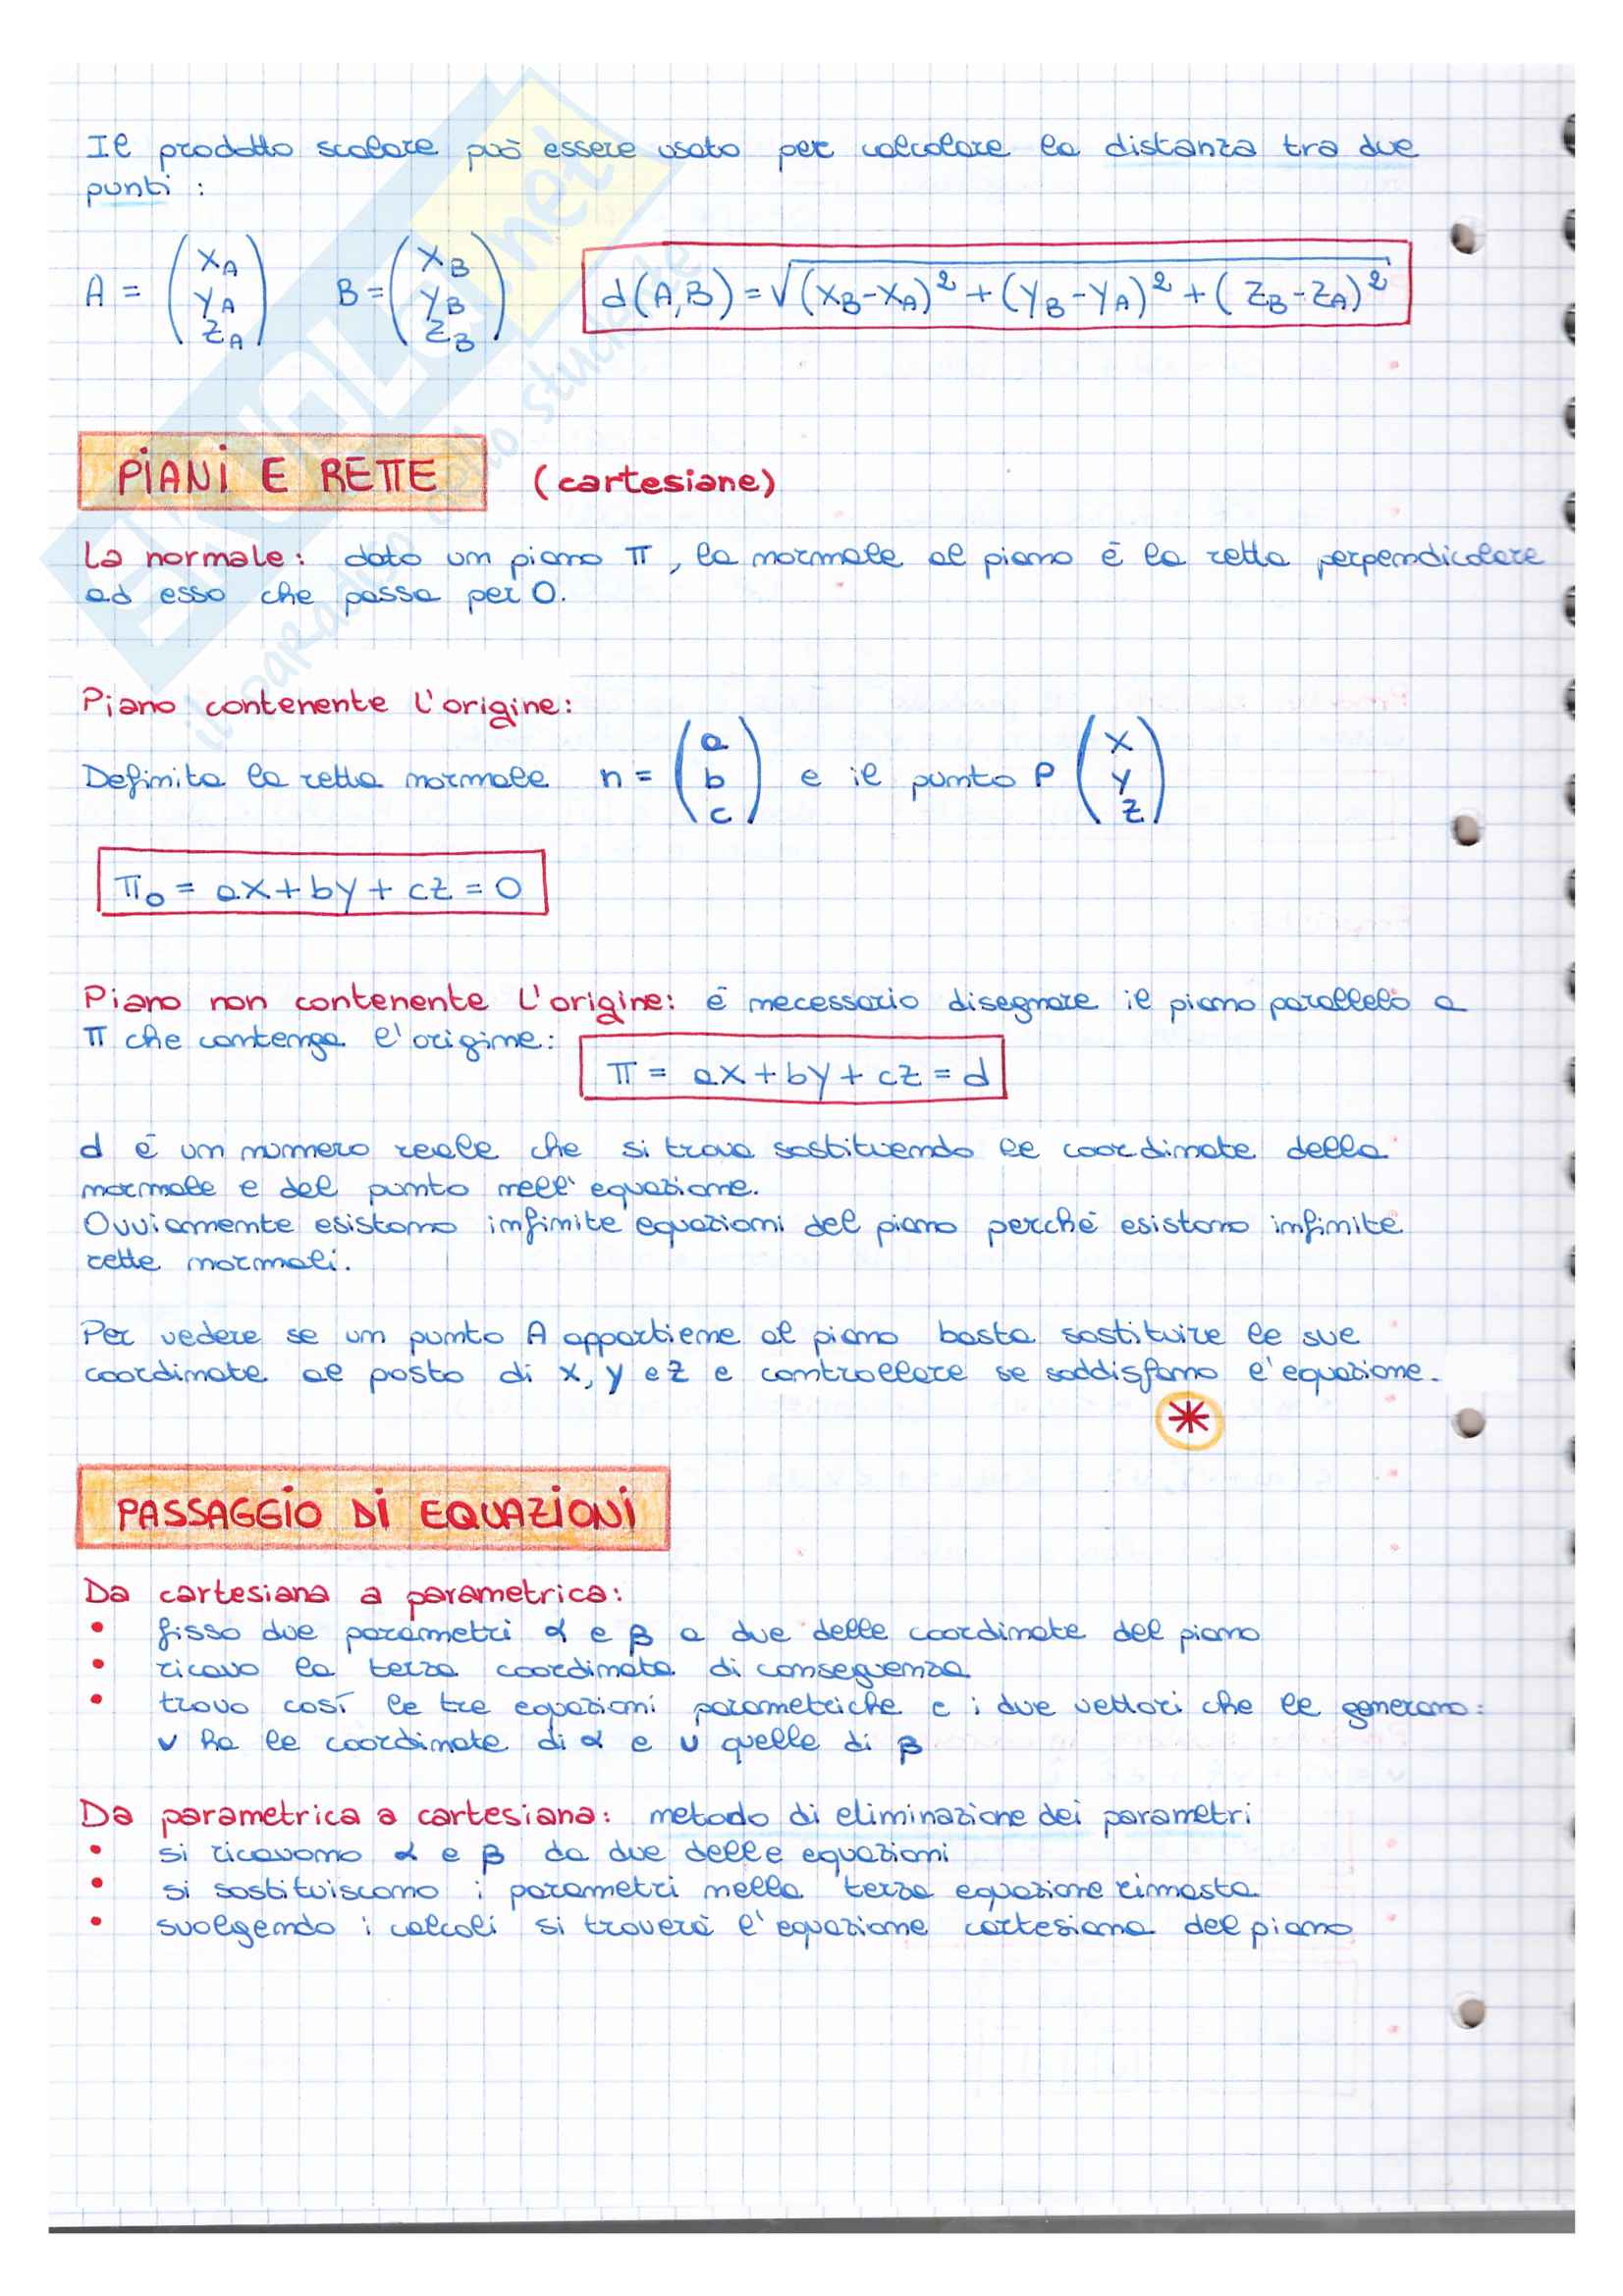 Il prodotto scalare può essere usato per calcolare la distanza tra due
punti :
A = (xA yA zA) B = (xB yB zB) d(A,B) = √(xB-xA)² + (yB-yA)² + (zB-zA)²
PIANI E RETTE (cartesiane)
La normale: dato un piano π, la normale al piano é la retta perpendicolare
ad esso che passa per O.
Piano contenente l'origine:
Definita la retta normale n = (a b c) e il punto P (x y z)
π₀ = ax+by+cz = 0
Piano non contenente l'origine: é necessario disegnare il piano parallelo a
π che contenga l'origine: π = ax+by+cz = d
d é un numero reale che si trova sostituendo le coordinate della
normale e del punto nell'equazione.
Ovviamente esistono infinite equazioni del piano perché esistono infinite
rette normali.
Per vedere se un punto A appartiene al piano basta sostituire le sue
coordinate al posto di x, y e z e controllare se soddisfano l'equazione.
*
PASSAGGIO DI EQUAZIONI
Da cartesiana a parametrica:
• fisso due parametri α e β a due delle coordinate del piano
• ricavo la terza coordinata di conseguenza
• trovo così le tre equazioni parametriche e i due vettori che le generano:
v ha le coordinate di α e u quelle di β
Da parametrica a cartesiana: metodo di eliminazione dei parametri
• si ricavano α e β da due delle equazioni
• si sostituiscono i parametri nella terza equazione rimasta
• svolgendo i calcoli si troverà l'equazione cartesiana del piano
SKUOLA.net
il paradiso dello studente